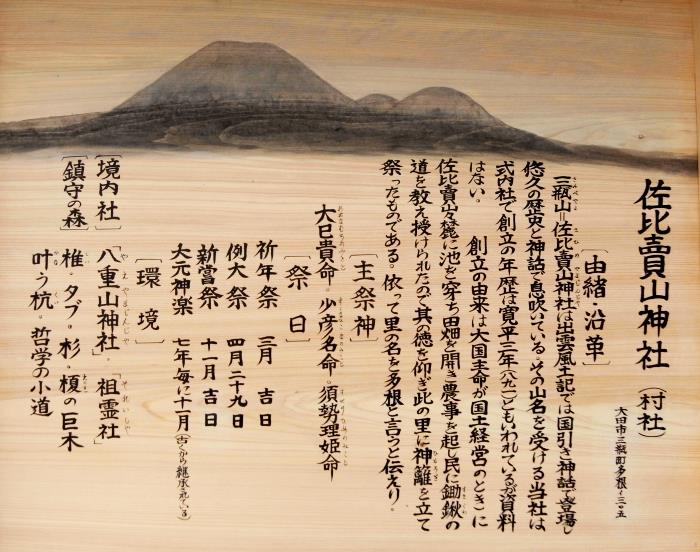 佐比賣山神社（村社）
大田市三瓶町多根イ三〇五
［由緒・沿革］
三瓶山＝佐比賣山神社は出雲風土記では国引き神話で登場し
悠久の歴史と神話で息吹いている。その山名を受ける当社は
式内社で創立の年歴は寛平三年（八九一）ともいわれているが資料
はない。　創立の由来は大国主命が国土経営のとき）に
佐比賣山々麓に池を穿ち田畑を開き農事を起し民に鋤鍬の
道を教え授けられたので其の徳を仰ぎ此の里に神籬を立て
祭ったものである。依って里の名を多根と言うと伝えり。
［主祭神］
大巳貴命。少彦名命。須勢理姫命
［祭日］
祈年祭　三月　吉日
例大祭　四月二十九日
新嘗祭　十一月吉日
大元神楽　七年毎に十一月（古くから継承されている）
［環境］
［境内社］「八重山神社」。「祖霊社」
［鎮守の森］椎・タブ。杉・榎の巨木
叶う杭。哲学の小道